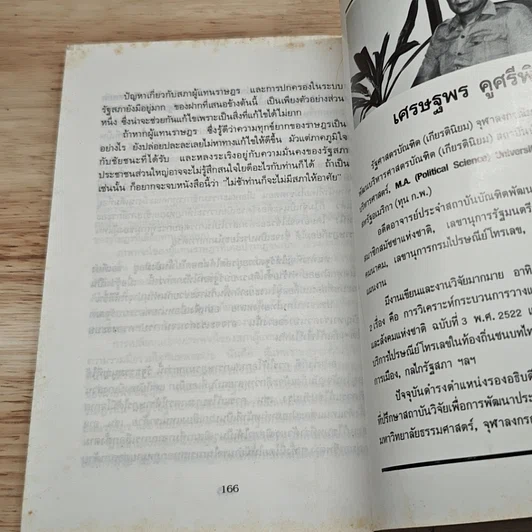 ปัญหาเกี่ยวกับสภาผู้แทนราษฎร และการปกครองในระบบ
รัฐสภายังมีอยู่มาก ของฝากที่เสนอข้างต้นนี้ เป็นเพียงตัวอย่างส่วน
หนึ่ง ซึ่งน่าจะช่วยกันแก้ไขเพราะเป็นสิ่งที่แก้ไขได้ไม่ยาก
ถ้าหากผู้แทนราษฎร ซึ่งรู้ดีว่าความทุกข์ยากของราษฎรเป็น
อย่างไร ยังปล่อยปละละเลยไม่หาทางแก้ไขให้ดีขึ้น มัวแต่ภาคภูมิใจ
กับชัยชนะที่ได้รับ และหลงระเริงอยู่กับความมั่นคงของรัฐสภา
ประชาชนส่วนใหญ่อาจจะไม่รู้สึกสนใจไยดีอะไรกับท่านก็ได้ ถ้าเป็น
เช่นนั้น ก็อยากจะจบหนังสือนี้ว่า "ไม่ช้าท่านก็จะไม่มีสภาให้อาศัย"
166
เศรษฐพร คูศรีพิ
รัฐศาสตรบัณฑิต (เกียรตินิยม) จุฬาลงกรณ์
พัฒนบริหารศาสตรบัณฑิต (เกียรตินิยม) สถาบัน
บริหารศาสตร์, M.A. (Political Science) Universi
สหรัฐอเมริกา (ทุน ก.พ.)
อดีตอาจารย์ประจำสถาบันบัณฑิตพัฒน
สมาชิกสมัชชาแห่งชาติ, เลขานุการรัฐมนตรี
คมนาคม, เลขานุการกรมไปรษณีย์โทรเลข,
แผนงาน
มีงานเขียนและงานวิจัยมากมาย อาทิ
2 เรื่อง คือ การวิเคราะห์กระบวนการวางแ
และสังคมแห่งชาติ ฉบับที่ 3 พ.ศ. 2522 เ
บริการไปรษณีย์โทรเลขในท้องถิ่นชนบทไท
การเมือง, กลไกรัฐสภา ฯลฯ
ปัจจุบันดำรงตำแหน่งรองอธิบดี
ที่ปรึกษาสถาบันวิจัยเพื่อการพัฒนาประ
มหาวิทยาลัยธรรมศาสตร์, จุฬาลงกร